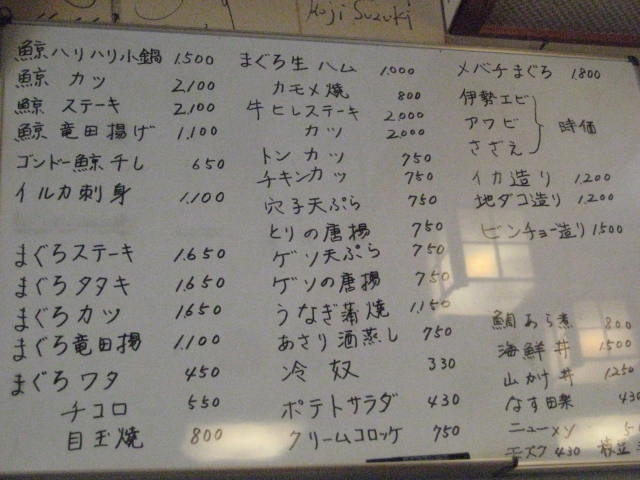 Koji Suzuki
鯨ハリハリ小鍋 1.500
鯨 カツ 2,100
鯨 ステーキ 2,100
鯨 竜田揚げ 1,100
ゴンドー鯨干し 650
イルカ刺身 1.100
まぐろステーキ 1.650
まぐろタタキ 1.650
まぐろカツ 1650
まぐろ竜田揚 1.100
まぐろワタ 450
チコロ 550
目玉焼 800
まぐろ生ハム 1.000
カモメ焼 800
牛ヒレステーキ 2,000
カツ 2,000
トンカツ 750
チキンカツ 750
穴子天ぷら 750
とりの唐揚 750
ゲソ天ぷら 750
ゲソの唐揚 750
うなぎ蒲焼 1,150
あさり酒蒸し 750
冷奴 330
ポテトサラダ 430
クリームコロッケ 750
メバチまぐろ 1.800
伊勢エビ
アワビ 時価
さざえ
イカ造り 1.200
地ダコ造り 1.200
ビンチョー造り 1500
鯛あら煮 800
海鮮丼 1500
山かけ丼 1250
なす田楽 430
ニューメン
モズク 430 枝豆